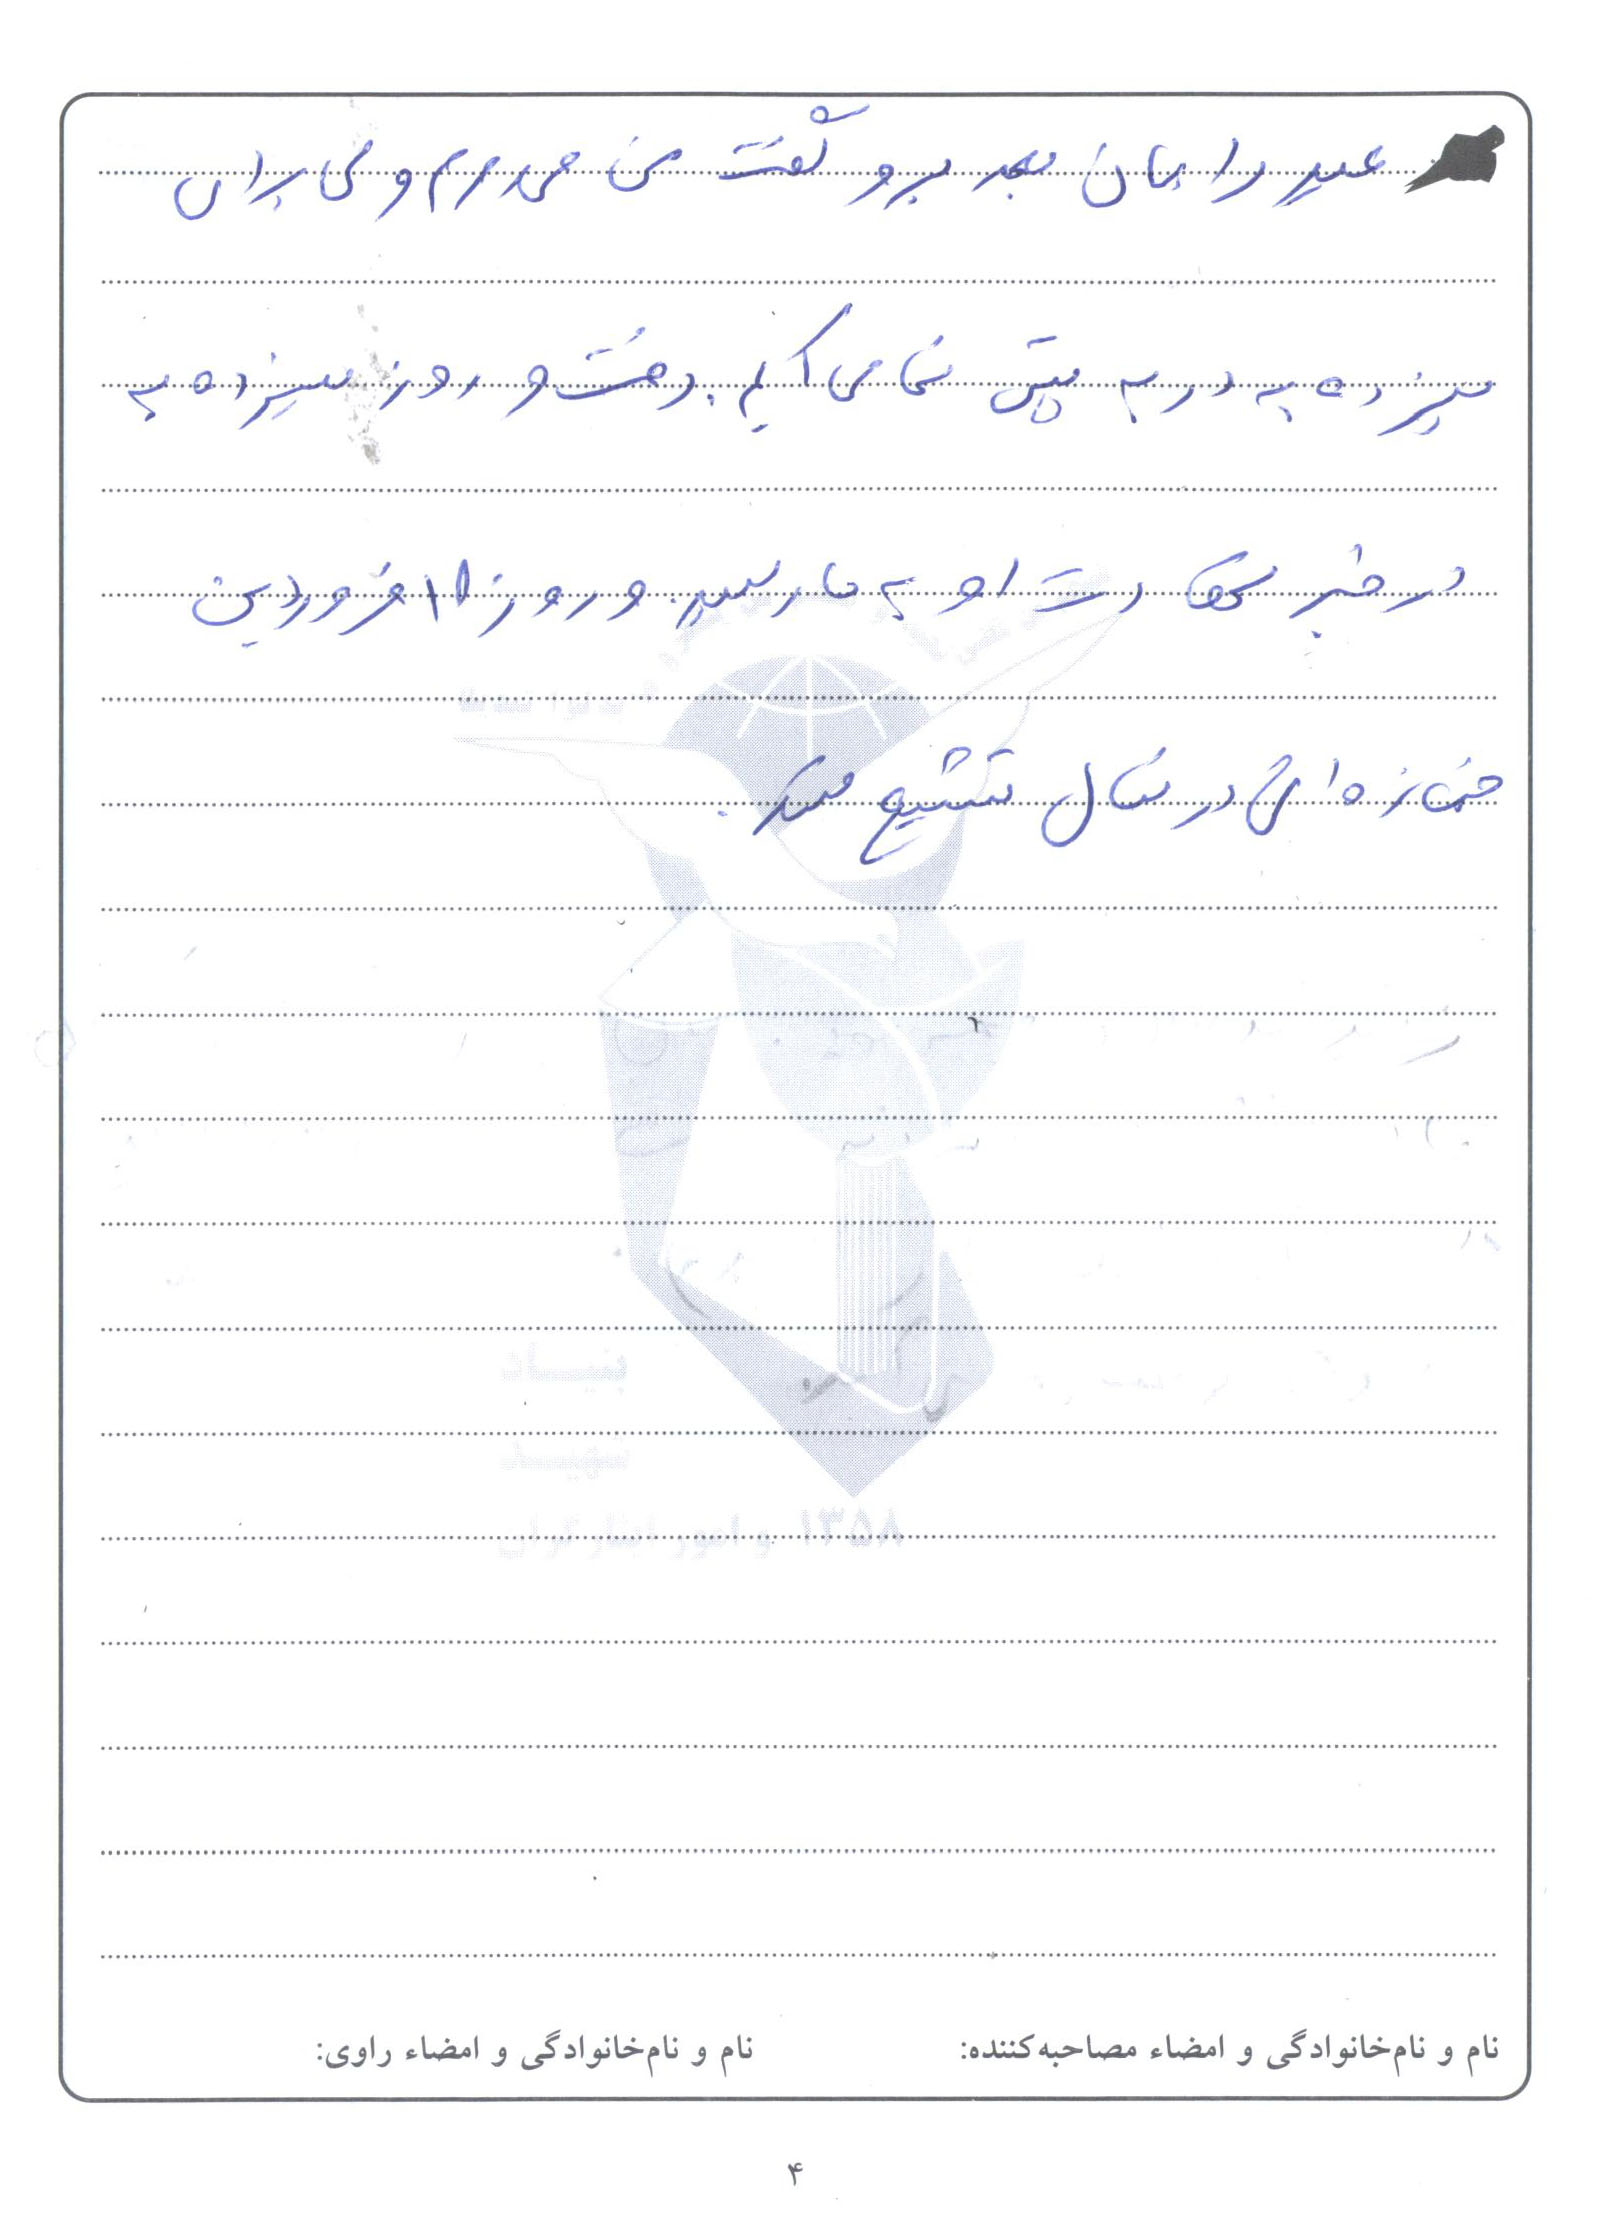 عید را بمان بعد برو گفت من می روم ولی برای
سیزده به در به پیش شما می آیم. رفت و روز سیزده به
در خبر شهادت او به ما رسید. و روز ۱۵ فروردین
جنازه اش در شال تشییع شد.
بنیاد
شهید
و امور ایثارگران ۱۳۵۸
نام و نام‌خانوادگی و امضاء مصاحبه‌کننده: نام و نام‌خانوادگی و امضاء راوی:
۴